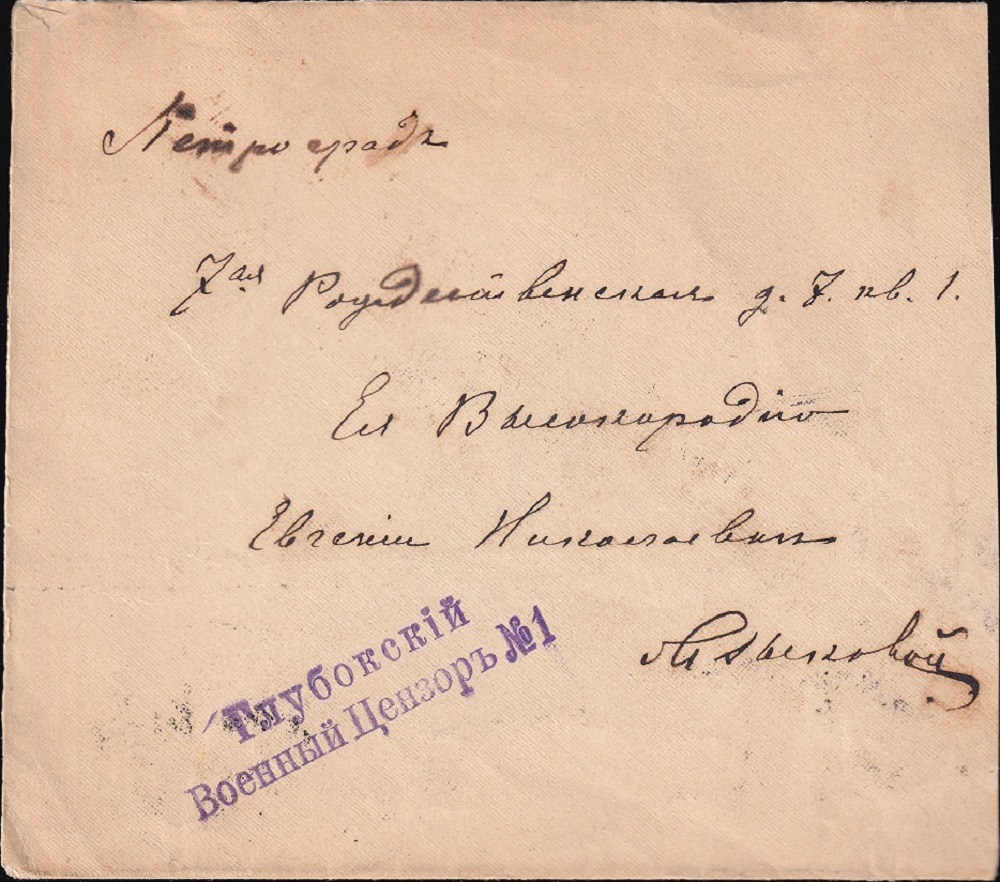 Петроградъ
7ая Рождественская д. 7. кв. 1.
Ея Высокородію
Евгеніи Николаевнѣ
Языковой
Глубокскій
Военный Цензоръ №1